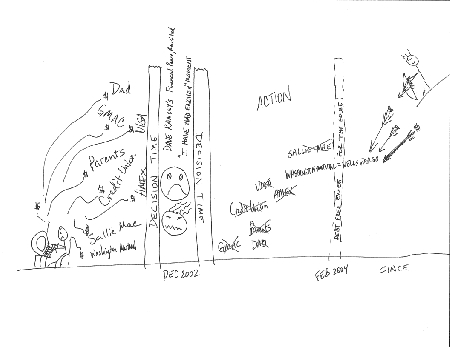 $ Dad
$ GMAC
$ VISA
$ Parents
$ Credit Union
$ AMEX
$ Sallie Mae
$ Washington Mutual
DECISION TIME
DAVE RAMSEY'S Financial Peace Revisited
"I HAVE HAD IT"
MOMENT
DECISION TIME
ACTION
SALLIE MAE
WASHINGTON MUTUAL = WELLS FARGO
VISA
AMEX
Credit Union
PARENTS
GMAC
DAD
DEBT FREE
DEC 2002
FEB 2004
SINCE